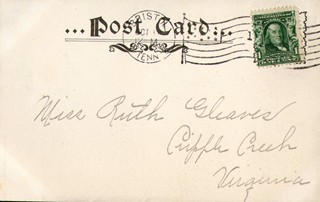 ...Post Card...
BRISTOL
OCT
M
TENN
1
Miss Ruth Gleaves
Cripple Creek
Virginia